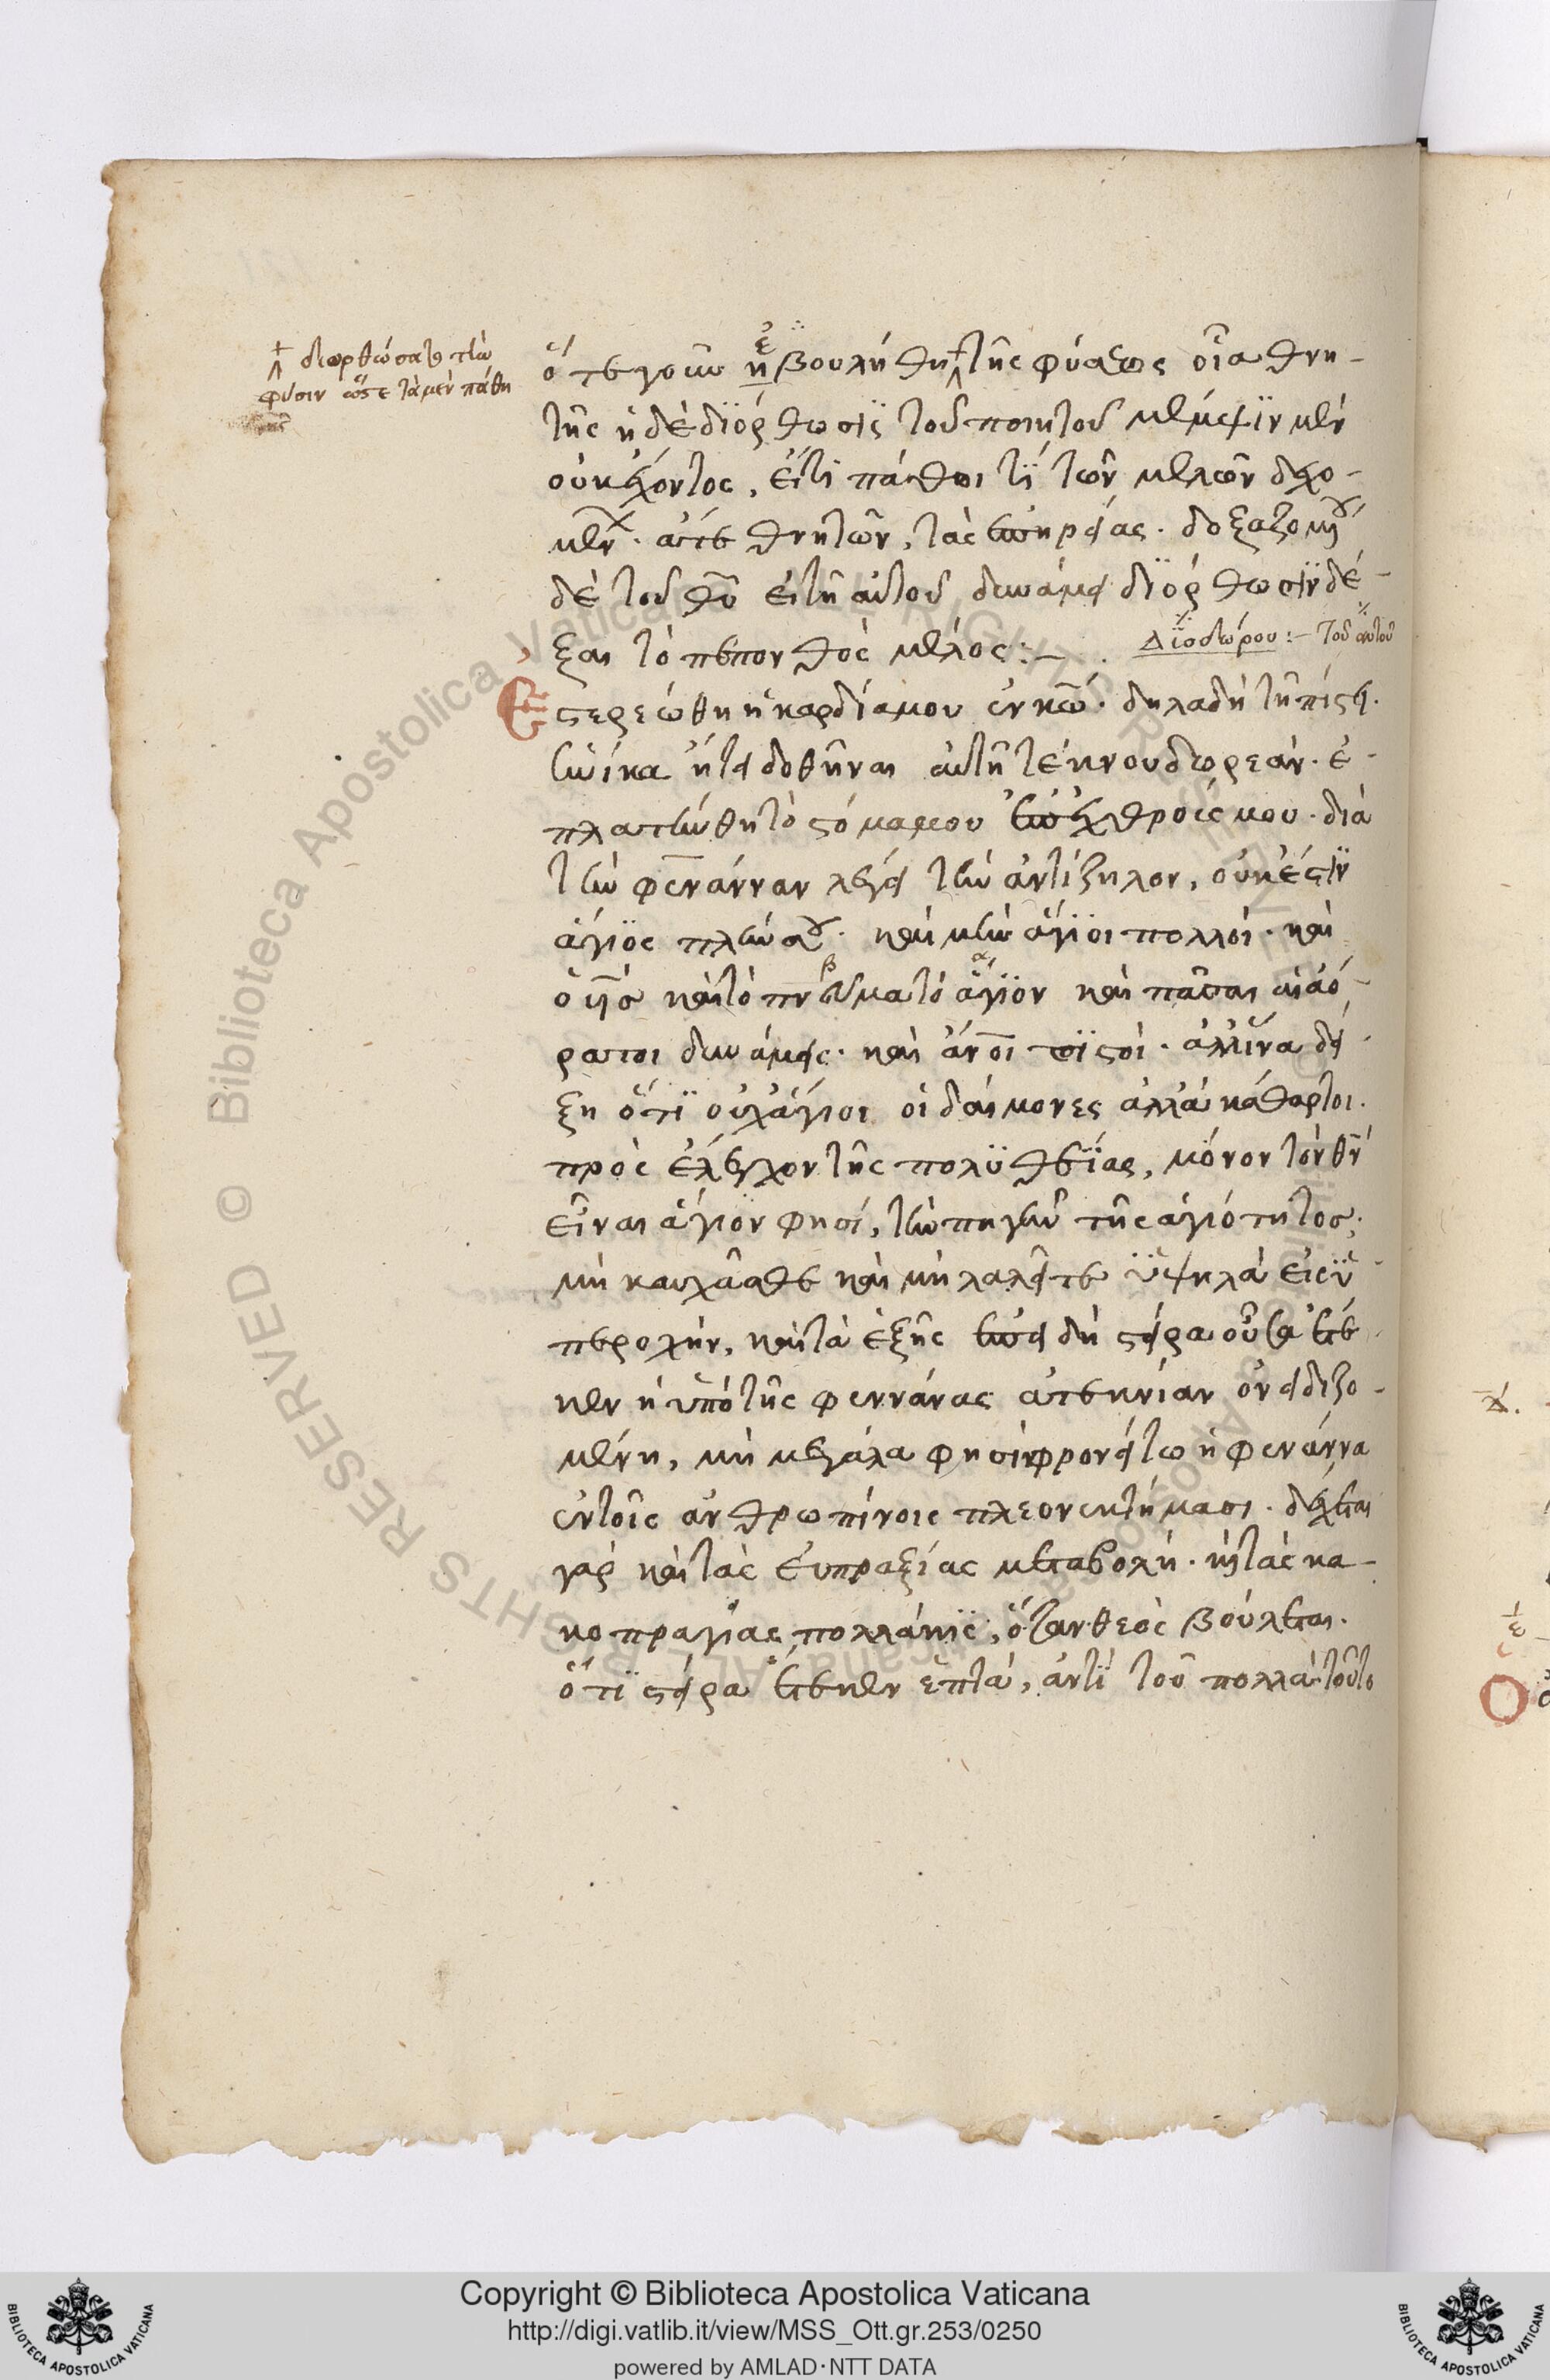 διορθώσασθαι τὴν
φύσιν ὥστε τὰ μὲν πάθη
ὅτε γοῦν ἠβουλήθη τῆς φύσεως οἷα θνη-
τῆς ἡ δὲ διόρθωσις τοῦ ποιητοῦ μέμψιν μὲν
οὐκ ἔχοντος, εἴ τι πάθοι τῒ τῶν μελῶν δεχο-
μεν ἅτε θνητῶν, τὰς πηρείας. δοξαζομένου
δὲ τοῦ θυ ἐι τῇ αὐτοῦ δυνάμει διόρθωσιν δέ-
ξαι τὸ πεπονθὸς μέλος:— Διοδώρου:— τοῦ αὐτοῦ
Ἐστερεώθη ἡ καρδία μου ἐν κω. δηλαδὴ τῇ πίστει.
ἡνίκα ᾔτει δοθῆναι αὐτῇ τέκνου δωρεάν. ἐ-
πλατύνθη τὸ στόμα μου ἐπ' ἐχθρούς μου. διὰ
τὴν φενάνναν λέγει τὴν ἀντίζηλον, οὐκ ἔστιν
ἅγιος πλὴν σου. καὶ μὴν ἅγιοι πολλοί. καὶ
ὁ υἱὸσ καὶ τὸ πνεῦμα τὸ ἅγιον καὶ πᾶσαι αἱ ἀό-
ρατοι δυνάμεις. καὶ ἄνοι πιστοί. ἀλλ' ἵνα δεί-
ξῃ ὅτι οὐχ ἅγιοι οἱ δαίμονες ἀλλ' ἀκάθαρτοι.
πρὸς ἔλεγχον τῆς πολυθεΐας, μόνον τὸν θν
εἶναι ἅγιον φησί, τὴν πηγὴν τῆς ἁγιότητος.
μὴ καυχᾶσθε καὶ μὴ λαλεῖτε ὑψηλὰ εἰς ὑ-
περοχήν, καὶ τὰ ἑξῆς ἐπεὶ δὴ στεῖρα οὖσα ἔτε-
κεν ἡ ὑπὸ τῆς φεννάνας ἀτεκνίαν ὀνειδιζο-
μένη, μὴ μεγάλα φησὶν φρονείτω ἡ φενάννα
ἐν τοῖς ἀνθρωπίνοις πλεονεκτήμασι. δέχεται
γὰρ καὶ τὰς εὐπραξίας μεταβολή. καὶ τὰς κα-
κοπραγίας πολλάκις, ὅταν θεὸς βούλεται.
ὅτι στεῖρα ἔτεκεν ἑπτά, ἀντὶ τοῦ πολλά τοῦτο
Copyright © Biblioteca Apostolica Vaticana
http://digi.vatlib.it/view/MSS_Ott.gr.253/0250
powered by AMLAD·NTT DATA